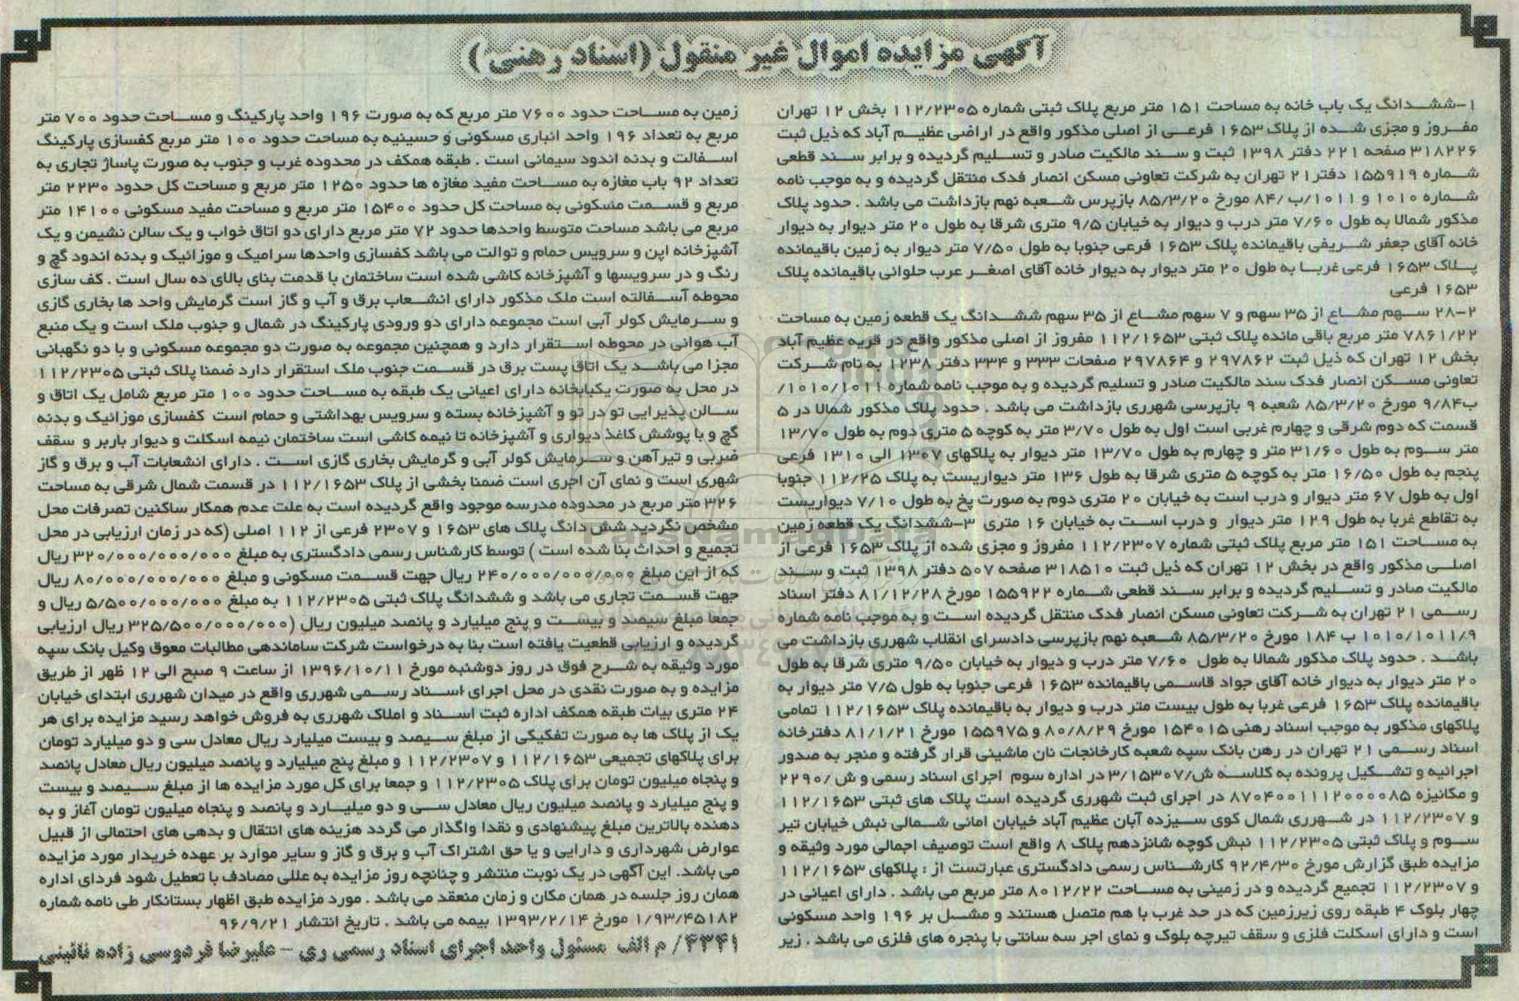 آگهی مزایده اموال غیر منقول (اسناد رهنی)
۱-ششدانگ یک باب خانه به مساحت ۱۵۱ متر مربع پلاک ثبتی شماره ۱۱۲/۲۳۰۵ بخش ۱۲ تهران
مفروز و مجزی شده از پلاک ۱۶۵۳ فرعی از اصلی مذکور واقع در اراضی عظیم آباد که ذیل ثبت
۳۱۸۲۲۶ صفحه ۲۲۱ دفتر ۱۳۹۸ ثبت و سند مالکیت صادر و تسلیم گردیده و برابر سند قطعی
شماره ۱۵۵۹۱۹ دفتر ۲۱ تهران به شرکت تعاونی مسکن انصار فدک منتقل گردیده و به موجب نامه
شماره ۱۰۱۰ و ۱۰۱۱/ب/۸۴ مورخ ۸۵/۳/۲۰ بازپرس شعبه نهم بازداشت می باشد . حدود پلاک
مذکور شمالا به طول ۷/۶۰ متر درب و دیوار به خیابان ۹/۵ متری شرقا به طول ۲۰ متر دیوار به دیوار
خانه آقای جعفر شریفی باقیمانده پلاک ۱۶۵۳ فرعی جنوبا به طول ۷/۵۰ متر دیوار به زمین باقیمانده
پلاک ۱۶۵۳ فرعی غربا به طول ۲۰ متر دیوار به دیوار خانه آقای اصغر عرب حلوانی باقیمانده پلاک
۱۶۵۳ فرعی
۲-۲۸ سهم مشاع از ۳۵ سهم و ۷ سهم مشاع از ۳۵ سهم ششدانگ یک قطعه زمین به مساحت
۷۸۶۱/۲۲ متر مربع باقی مانده پلاک ثبتی ۱۱۲/۱۶۵۳ مفروز از اصلی مذکور واقع در قریه عظیم آباد
بخش ۱۲ تهران که ذیل ثبت ۲۹۷۸۶۲ و ۲۹۷۸۶۴ صفحات ۳۳۳ و ۳۳۴ دفتر ۱۲۳۸ به نام شرکت
تعاونی مسکن انصار فدک سند مالکیت صادر و تسلیم گردیده و به موجب نامه شماره ۱۰۱۰/۱۰۱۱/
ب۹/۸۴ مورخ ۸۵/۳/۲۰ شعبه ۹ بازپرسی شهرری بازداشت می باشد . حدود پلاک مذکور شمالا در ۵
قسمت که دوم شرقی و چهارم غربی است اول به طول ۳/۷۰ متر به کوچه ۵ متری دوم به طول ۱۳/۷۰
متر سوم به طول ۳۱/۶۰ متر و چهارم به طول ۱۳/۷۰ متر دیوار به پلاکهای ۱۳۰۷ الی ۱۳۱۰ فرعی
پنجم به طول ۱۶/۵۰ متر به کوچه ۵ متری شرقا به طول ۱۳۶ متر دیواریست به پلاک ۱۱۲/۲۵ جنوبا
اول به طول ۶۷ متر دیوار و درب است به خیابان ۲۰ متری دوم به صورت پخ به طول ۷/۱۰ دیواریست
به تقاطع غربا به طول ۱۲۹ متر دیوار و درب است به خیابان ۱۶ متری ۳-ششدانگ یک قطعه زمین
به مساحت ۱۵۱ متر مربع پلاک ثبتی شماره ۱۱۲/۲۳۰۷ مفروز و مجزی شده از پلاک ۱۶۵۳ فرعی از
اصلی مذکور واقع در بخش ۱۲ تهران که ذیل ثبت ۳۱۸۵۱۰ صفحه ۵۰۷ دفتر ۱۳۹۸ ثبت و سند
مالکیت صادر و تسلیم گردیده و برابر سند قطعی شماره ۱۵۵۹۲۲ مورخ ۸۱/۱۲/۲۸ دفتر اسناد
رسمی ۲۱ تهران به شرکت تعاونی مسکن انصار فدک منتقل گردیده است و به موجب نامه شماره
۱۰۱۰/۱۰۱۱/۹ ب ۱۸۴ مورخ ۸۵/۳/۲۰ شعبه نهم بازپرسی دادسرای انقلاب شهرری بازداشت می
باشد . حدود پلاک مذکور شمالا به طول ۷/۶۰ متر درب و دیوار به خیابان ۹/۵۰ متری شرقا به طول
۲۰ متر دیوار به دیوار خانه آقای جواد قاسمی باقیمانده ۱۶۵۳ فرعی جنوبا به طول ۷/۵ متر دیوار به
باقیمانده پلاک ۱۶۵۳ فرعی غربا به طول بیست متر درب و دیوار به باقیمانده پلاک ۱۱۲/۱۶۵۳ تمامی
پلاکهای مذکور به موجب اسناد رهنی ۱۵۴۰۱۵ مورخ ۸۰/۸/۲۹ و ۱۵۵۹۷۵ مورخ ۸۱/۱/۲۱ دفترخانه
اسناد رسمی ۲۱ تهران در رهن بانک سپه شعبه کارخانجات نان ماشینی قرار گرفته و منجر به صدور
اجرائیه و تشکیل پرونده به کلاسه ش/۳/۱۵۳۰۷ در اداره سوم اجرای اسناد رسمی و ش/۲۲۹۰
و مکانیزه ۸۷۰۴۰۰۱۱۱۲۰۰۰۰۸۵ در اجرای ثبت شهرری گردیده است پلاک های ثبتی ۱۱۲/۱۶۵۳
و ۱۱۲/۲۳۰۷ در شهرری شمال کوی سیزده آبان عظیم آباد خیابان امانی شمالی نبش خیابان تیر
سوم و پلاک ثبتی ۱۱۲/۲۳۰۵ نبش کوچه شانزدهم پلاک ۸ واقع است توصیف اجمالی مورد وثیقه و
مزایده طبق گزارش مورخ ۹۲/۴/۳۰ کارشناس رسمی دادگستری عبارتست از : پلاکهای ۱۱۲/۱۶۵۳
و ۱۱۲/۲۳۰۷ تجمیع گردیده و در زمینی به مساحت ۸۰۱۲/۲۲ متر مربع می باشد . دارای اعیانی در
چهار بلوک ۴ طبقه روی زیرزمین که در حد غرب با هم متصل هستند و مشمل بر ۱۹۶ واحد مسکونی
است و دارای اسکلت فلزی و سقف تیرچه بلوک و نمای اجر سه سانتی با پنجره های فلزی می باشد . زیر
زمین به مساحت حدود ۷۶۰۰ متر مربع که به صورت ۱۹۶ واحد پارکینگ و مساحت حدود ۷۰۰ متر
مربع به تعداد ۱۹۶ واحد انباری مسکونی و حسینیه به مساحت حدود ۱۰۰ متر مربع کفسازی پارکینگ
اسفالت و بدنه اندود سیمانی است . طبقه همکف در محدوده غرب و جنوب به صورت پاساژ تجاری به
تعداد ۹۲ باب مغازه به مساحت مفید مغازه ها حدود ۱۲۵۰ متر مربع و مساحت کل حدود ۲۲۳۰ متر
مربع و قسمت مسکونی به مساحت کل حدود ۱۵۴۰۰ متر مربع و مساحت مفید مسکونی ۱۴۱۰۰ متر
مربع می باشد مساحت متوسط واحدها حدود ۷۲ متر مربع دارای دو اتاق خواب و یک سالن نشیمن و یک
آشپزخانه اپن و سرویس حمام و توالت می باشد کفسازی واحدها سرامیک و موزائیک و بدنه اندود گچ و
رنگ و در سرویسها و آشپزخانه کاشی شده است ساختمان با قدمت بنای بالای ده سال است . کف سازی
محوطه آسفالته است ملک مذکور دارای انشعاب برق و آب و گاز است گرمایش واحد ها بخاری گازی
و سرمایش کولر آبی است مجموعه دارای دو ورودی پارکینگ در شمال و جنوب ملک است و یک منبع
آب هوانی در محوطه استقرار دارد و همچنین مجموعه به صورت دو مجموعه مسکونی و با دو نگهبانی
مجزا می باشد یک اتاق پست برق در قسمت جنوب ملک استقرار دارد ضمنا پلاک ثبتی ۱۱۲/۲۳۰۵
در محل به صورت یکبابخانه دارای اعیانی یک طبقه به مساحت حدود ۱۰۰ متر مربع شامل یک اتاق و
سالن پذیرایی تو در تو و آشپزخانه بسته و سرویس بهداشتی و حمام است کفسازی موزائیک و بدنه
گچ و با پوشش کاغذ دیواری و آشپزخانه تا نیمه کاشی است ساختمان نیمه اسکلت و دیوار باربر و سقف
ضربی و تیرآهن و سرمایش کولر آبی و گرمایش بخاری گازی است . دارای انشعابات آب و برق و گاز
شهری است و نمای آن اجری است ضمنا بخشی از پلاک ۱۱۲/۱۶۵۳ در قسمت شمال شرقی به مساحت
۳۲۶ متر مربع در محدوده مدرسه موجود واقع گردیده است به علت عدم همکار ساکنین تصرفات محل
مشخص نگردید شش دانگ پلاک های ۱۶۵۳ و ۲۳۰۷ فرعی از ۱۱۲ اصلی (که در زمان ارزیابی در محل
تجمیع و احداث بنا شده است ) توسط کارشناس رسمی دادگستری به مبلغ ۳۲۰/۰۰۰/۰۰۰/۰۰۰ ریال
که از این مبلغ ۲۴۰/۰۰۰/۰۰۰/۰۰۰ ریال جهت قسمت مسکونی و مبلغ ۸۰/۰۰۰/۰۰۰/۰۰۰ ریال
جهت قسمت تجاری می باشد و ششدانگ پلاک ثبتی ۱۱۲/۲۳۰۵ به مبلغ ۵/۵۰۰/۰۰۰/۰۰۰ ریال و
جمعا مبلغ سیصد و بیست و پنج میلیارد و پانصد میلیون ریال (۳۲۵/۵۰۰/۰۰۰/۰۰۰ ریال ارزیابی
گردیده و ارزیابی قطعیت یافته است بنا به درخواست شرکت ساماندهی مطالبات معوق وکیل بانک سپه
مورد وثیقه به شرح فوق در روز دوشنبه مورخ ۱۳۹۶/۱۰/۱۱ از ساعت ۹ صبح الی ۱۲ ظهر از طریق
مزایده و به صورت نقدی در محل اجرای اسناد رسمی شهرری واقع در میدان شهرری ابتدای خیابان
۲۴ متری بیات طبقه همکف اداره ثبت اسناد و املاک شهرری به فروش خواهد رسید مزایده برای هر
یک از پلاک ها به صورت تفکیکی از مبلغ سیصد و بیست میلیارد ریال معادل سی و دو میلیارد تومان
برای پلاکهای تجمیعی ۱۱۲/۱۶۵۳ و ۱۱۲/۲۳۰۷ و مبلغ پنج میلیارد و پانصد میلیون ریال معادل پانصد
و پنجاه میلیون تومان برای پلاک ۱۱۲/۲۳۰۵ و جمعا برای کل مورد مزایده ها از مبلغ سیصد و بیست
و پنج میلیارد و پانصد میلیون ریال معادل سی و دو میلیارد و پانصد و پنجاه میلیون تومان آغاز و به
دهنده بالاترین مبلغ پیشنهادی و نقدا واگذار می گردد هزینه های انتقال و بدهی های احتمالی از قبیل
عوارض شهرداری و دارایی و یا حق اشتراک آب و برق و گاز و سایر موارد بر عهده خریدار مورد مزایده
می باشد. این آگهی در یک نوبت منتشر و چنانچه روز مزایده به عللی مصادف با تعطیل شود فردای اداره
همان روز جلسه در همان مکان و زمان منعقد می باشد . مورد مزایده طبق اظهار بستانکار طی نامه شماره
۱/۹۳/۴۵۱۸۲ مورخ ۱۳۹۳/۲/۱۴ بیمه می باشد . تاریخ انتشار ۹۶/۹/۲۱
۴۳۴۱/م الف مسئول واحد اجرای اسناد رسمی ری - علیرضا فردوسی زاده نائینی
ParsNamadData